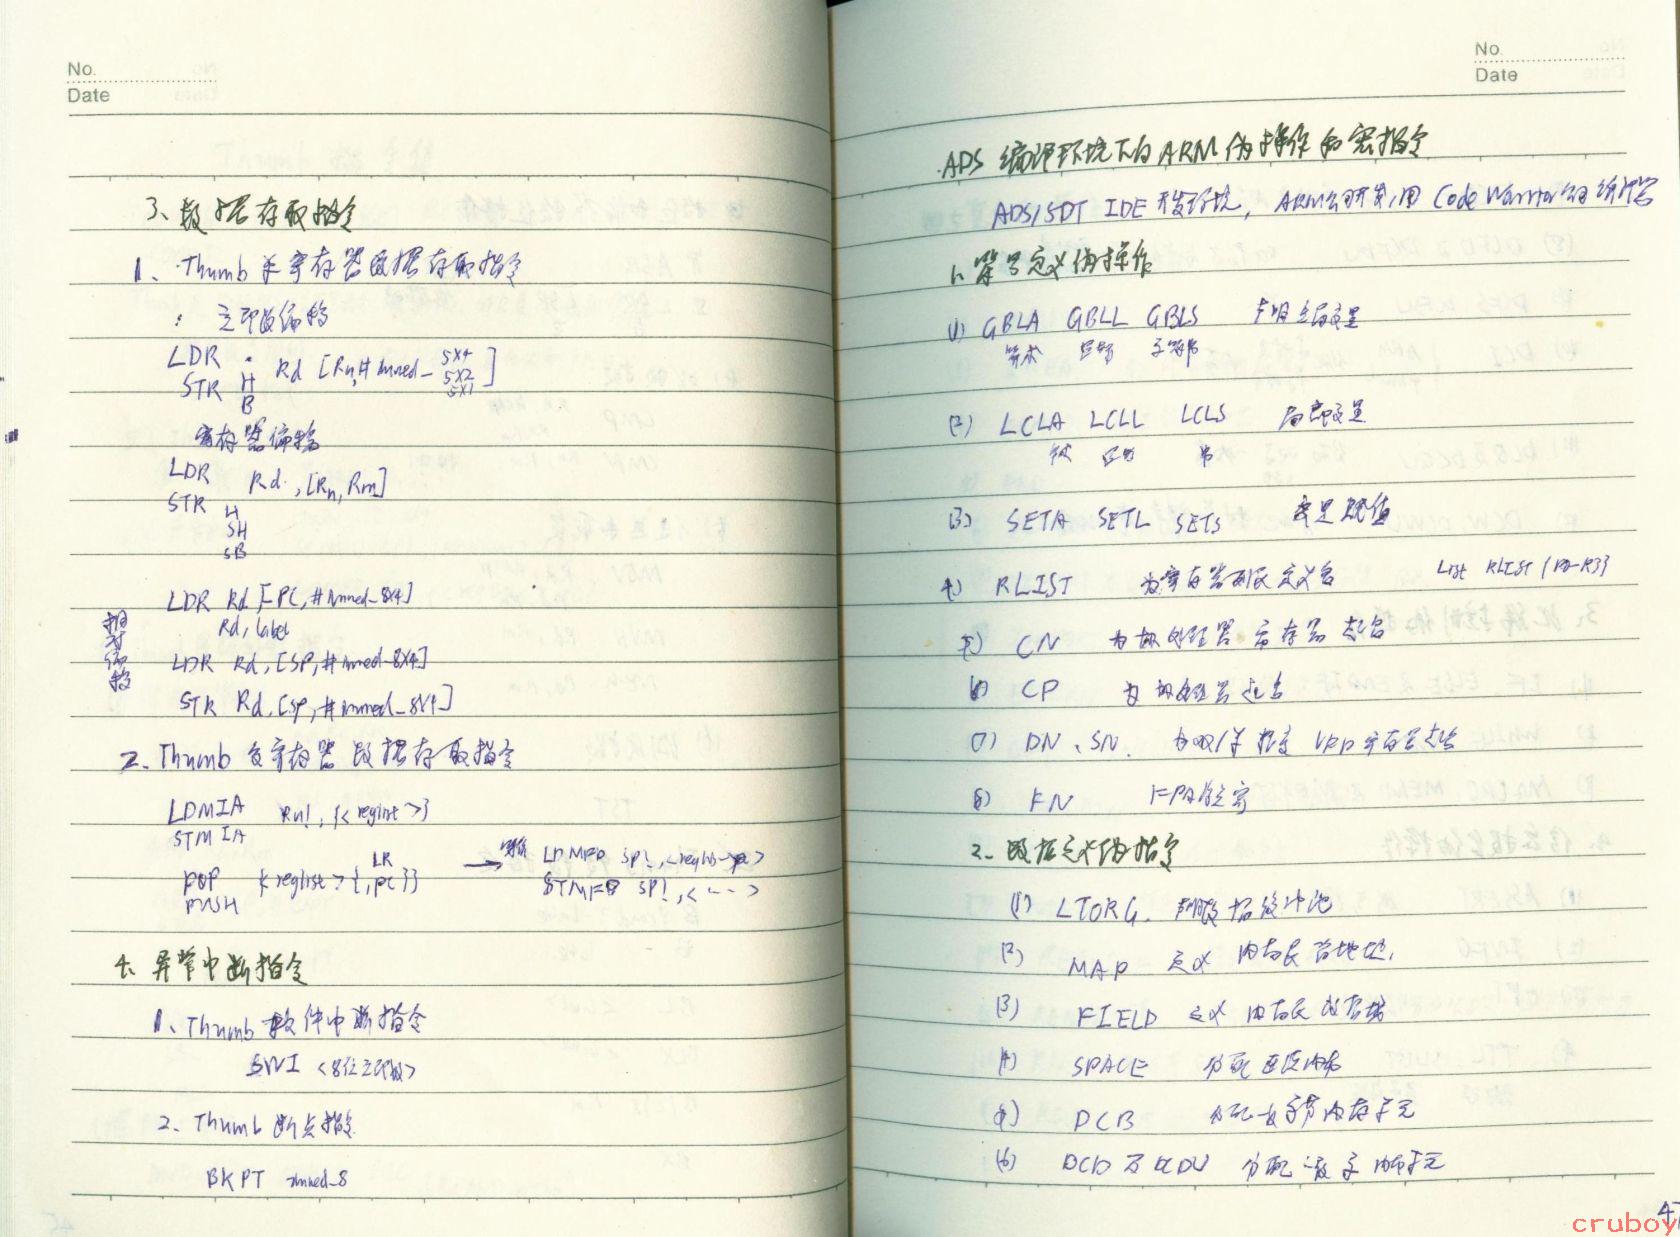 No.
Date
3、数据存取指令
1、Thumb单寄存器数据存取指令
: 立即数偏移
LDR Rd [Rn,# immed_ 5X4
STR H 5X2 ]
B 5X1
寄存器偏移
LDR Rd.,[Rn, Rm]
STR H
SH
SB
LDR Rd [PC,#immed_8X4]
Rd, label
相对偏移
LDR Rd,[SP,#immed_8X4]
STR Rd,[SP,#immed_8X4]
2、Thumb 多寄存器数据存取指令
LDMIA Rn!, {<reglist>}
STMIA
POP {<reglist>{,PC}} LR →
PUSH
LDMFD SP!,<reglist
STMFD SP!,<---->
4、异常中断指令
1、Thumb 软件中断指令
SWI <8位立即数>
2、Thumb 断点指令
BKPT immed_8
No.
Date
ADS 编译环境下的ARM伪操作和宏指令
ADS/SDT IDE开发环境, ARM公司开发,用 CodeWarrior公司编译器
1、符号定义伪操作
(1) GBLA GBLL GBLS 声明全局变量
算术 逻辑 字符串
(2) LCLA LCLL LCLS 局部变量
逻辑 串
(3) SETA SETL SETS 变量赋值
4) RLIST 为寄存器列表定义名 List RLIST {R0-R3}
5) CN 为协处理器寄存器起名
6) CP 为协处理器起名
(7) DN、SN. 为双/单精度 VFP寄存器起名
8) FN FPA寄存
2、数据定义伪指令
(1) LTORG. 声明数据缓冲池
(2) MAP 定义 内存表首地址,
(3) FIELD 定义 内存表数据域
(4) SPACE 分配连续内存
(5) DCB 分配一段字节内存单元
(6) DCD 及 DCDU 分配一段字内存单元
47
cruboy